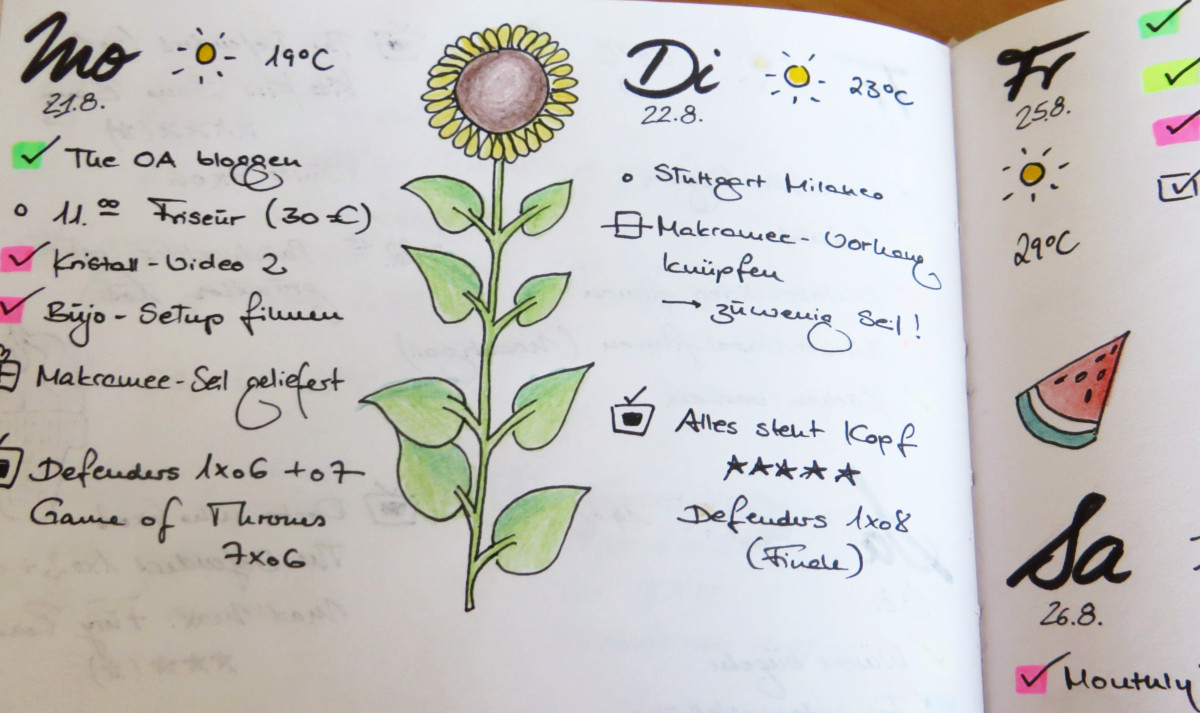 Mo
19°C
21.8.
The OA bloggen
11.00 Friseur (30 €)
Kristall-Video 2
Bujo-Setup filmen
Makramee-Seil geliefert
Defenders 1x06 + 07
Game of Thrones
7x06
Di
23°C
22.8.
Stuttgart Milaneo
Makramee-Vorhang
knüpfen
→ zuwenig Seil!
Alles steht Kopf
★★★★★
Defenders 1x08
(Finale)
Fr
25.8.
29°C
Sa
26.8.
Monthly